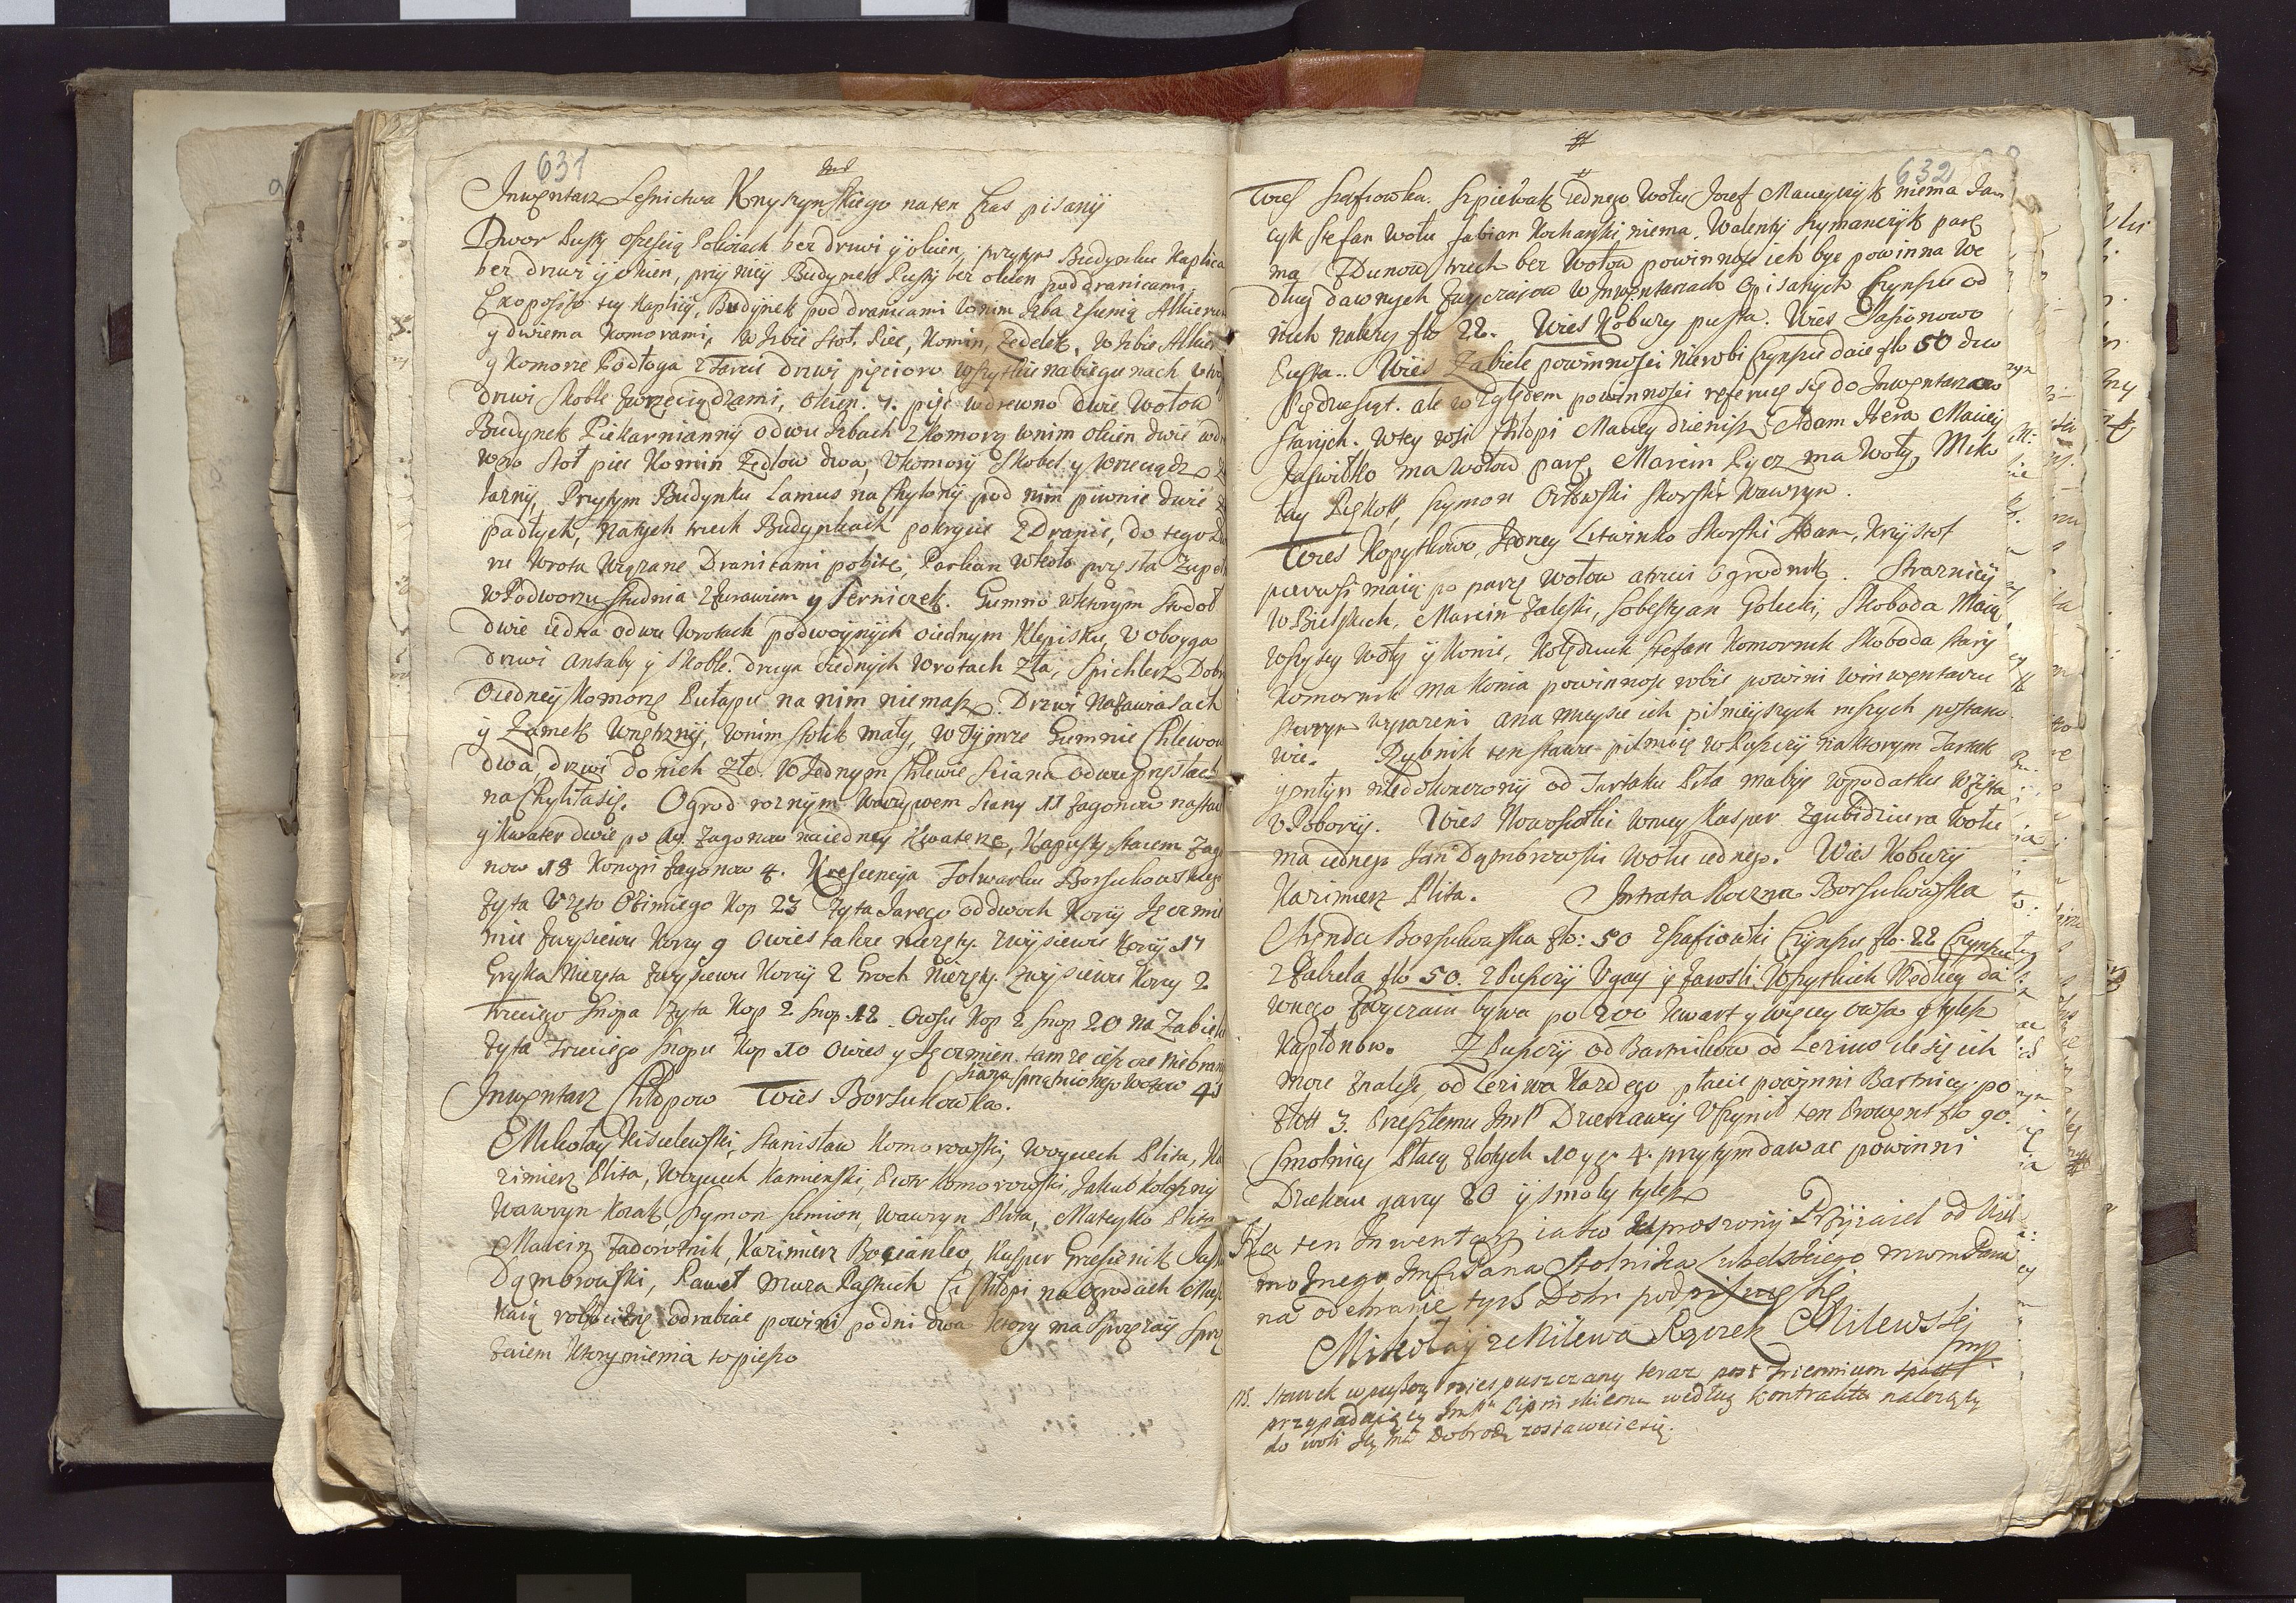 631
Inwentarz Lesnictwa Knyszynskiego na ten Czas pisany
Dwor Pusty oszesciu Pokoiach bez drzwi y okien, przytym Budynku Kaplica
bez drzwi y okien, przy niey Budynek Pusty bez okien pod dranicami,
Ex opposito tey Kaplicy, Budynek pod dranicami w nim Izba z sienią Alkierem
y dwiema Komorami, w Izbie Stoł, Piec, Komin, Zedelek, w Izbie Alkier
y Komorze Podłoga z Tarcic drzwi pięcioro wszytkie na biegunach u tych
drzwi Skoble zwrzeciądzami, Okien. 7. pięć w drewno dwie w ołow
Budynek Piekarnianny o dwu Izbach z Komorą w nim Okien dwie w dr
wno Stoł piec Komin Zedlow dwa, u Komory Skobel y wrzeciądz
larny, Przytym Budynku Lamus na schylony pod nim piwnic dwie
padłych, na tych trzech Budynkach pokrycie z Dranic, do tego Dwo
ru Wrota Wiązane Dranicami pobite, Parkan w koło przęsła zupeł
w Podworzu studnia z Zurawiem y Perniczek. Gumno w ktorym Stodoł
dwie iedna o dwu Wrotach podwoynych o iednym Klepisku, u oboyga
drzwi Antaby y Skoble. druga o iednych wrotach Zła, Spichlerz Dobr
O iedney Komorze Pułapu na nim niemasz. Drzwi na Zawiasach
y Zamek Wnętrzny, w nim stolik mały, w Tymze Gumnie Chlewow
dwa, drzwi do nich złe. w Jednym Chlewie Sciana o dwu przęsłach
na Chyliła się. Ogrod roznym Warzywem siany 11 Zagonow na staie
y Kwater dwie po Zagonow na iedney Kwaterze, Kapusty staiem Zago
now 18 Konopi Zagonow 4. Krescencya Folwarku Borsukowskiego
Zyta Uzęto Ozimiego Kop 23 Zyta Jarego od dwoch Korcy Jęczmie
nia Zwysiewu Korcy 9 Owies także niezęty. zwysiewu Korcy 17
Gryka Niezęta Zwysiewu Korcy 2 Groch Niezęty. Zwysiewu Korcy 2
Trzeciego Snopa Zyta Kop 2 Snop. 12. Owsa Kop 2 Snop 20 na Zabiele
Zyta Trzeciego Snopu Kop 10 Owies y Jęczmien tamze ieszcze niebrany
Siana Sprzątnionego Wozow 4
Inwentarz Chłopow Wies Borsukowka.
Mikołay Kisielewski, Stanisław Komorowski, Woyciech Plisa, Ka
zimierz Plisa, Woyciech Kamienski, Piotr Komorowski, Jakub Kołoszny
Wawryn Kozak, Szymon Simion, Wawryn Plisa, Matyzko Plisa
Marcin Zadorożnik, Kazimierz Bocianko, Kasper Grzesienik
Dąmbrowski, Paweł Mura Paskuch Ci Chłopi na Ogrodach
kaią robociznę odrabiac powini po dni dwa Ktory ma Sprzęzay Sprzę
zaiem Ktory niema to pieszo
632
Wies Szafrowka. Szpiewak Jednego Wołu Jozef Macieyczyk niema Jan
cyk Stefan Wołu Fabian Kochanski niema. Walenty Szymanczyk parę
ma Zdunow trzech bez Wołow powinnosc ich byc powinna We
dług dawnych Zwyczaiow w Inwentarzach Opisanych Czynszu od
nich nalezy flo 22. Wies Kobuzy pusta. Wies Jasionowo
Pusta.. Wies Zabiele powinnosci nierobi Czynszu daie flo 50 dico
Pięcdziesiąt. ale w Zględem powinnosci referuię się do Inwentarzow
Starych. W tey wsi Chłopi Maciey dzienisz, Adam Stera Maciey
Jaswiłko ma Wołow parę, Marcin Pycz ma Woły, Miko
łay Pęskoł, Szymon Orłowski Skorski Wawryn.
Wies Kopytkowo, Jędrzey Litwinko Skorski Adam, Krystof
pierwsi maią po parze Wołow a trzeci Ogrodnik. Straznicy
w Bielskich, Marcin Zaleski, Sobestyan Golecki, Skoboda Maią
wszyscy Woły y Konie, Kolędziuk Stefan Komornik Skoboda Stary
Komornik ma Konia powinnosc robic powini w inwentarzu
Starym wyrazeni a na mieysce ich pilnieyszych inszych postano
wic. Rybnik ten stawu pilnuie w Puszczy na ktorym Tartak
y młyn niedokonczony od Tartaku Piła ma byc w podatku wzięta
u Poborcy. Wies Nowosiołki w niey Kasper Zgubidziura Wołu
ma iednego Jan Dąmbrowski Wołu iednego. Wies Kobuzy
Kazimierz Plisa. Intrata Roczna Borsukowska
Arenda Borsukowska flo: 50 z Szafrowki Czynszu flo. 22 Czynszu
z Zabiela flo 50. z Puszczy Ugay y Zarosli Wszytkich Według da
wnego Zwyczaiu bywa po 200 Kwart y więcey Owsa y tylesz
Kapłonow. Z Puszczy od Bartnikow od Leziwo ile się ich
moze Znalesc, od Leziwa Kazdego płacic powinni Bartnicy po
Złott 3. Przeszłemu Jmsc Dzierzawcy Uczynił ten Prowent flo 90.
Smolnicy Płacą Złotych 10 y gr 4. przytym dawac powinni
Dziekciu garcy 20 y smoły tylesz
Ia ten Inwentarz iako Uproszony Przyiaciel od Wiel
możnego Jmsci Pana Stolnika Lubelskiego mwmPana
na odebranie tych Dobr podpisuię się
Mikołay z Milewa Rzączek Milewski
mp
NS. Stawek w puszczy nie spuszczany teraz post triennium spust
przypadaiący Jmsci Lipinskiemu według kontraktu należący
do woli Jego Mci Dobrodz zostawuie się.